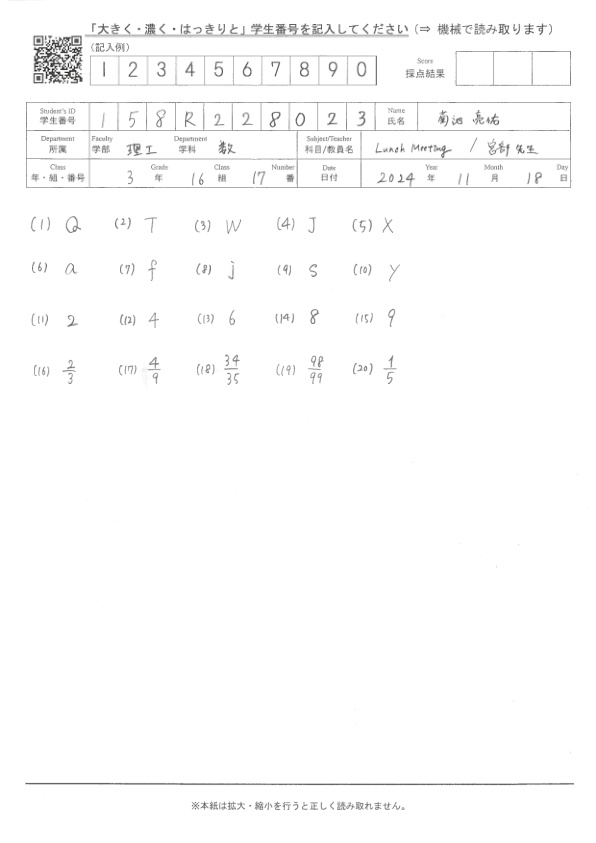 「大きく・濃く・はっきりと」学生番号を記入してください（⇒ 機械で読み取ります）
（記入例）
1 2 3 4 5 6 7 8 9 0
Score
採点結果
Student's ID
学生番号
1 5 8 R 2 2 8 0 2 3
Name
氏名
菊池 亮佑
Department
所属
Faculty
学部
理工
Department
学科
数
Subject/Teacher
科目/教員名
Lunch Meeting / 宮部 先生
Class
年・組・番号
3
Grade
年
16
Class
組
17
Number
番
Date
日付
2024
Year
年
11
Month
月
18
Day
日
(1) Q (2) T (3) W (4) J (5) X
(6) a (7) f (8) j (9) s (10) y
(11) 2 (12) 4 (13) 6 (14) 8 (15) 9
(16) 2/3 (17) 4/9 (18) 34/35 (19) 98/99 (20) 1/5
※本紙は拡大・縮小を行うと正しく読み取れません。